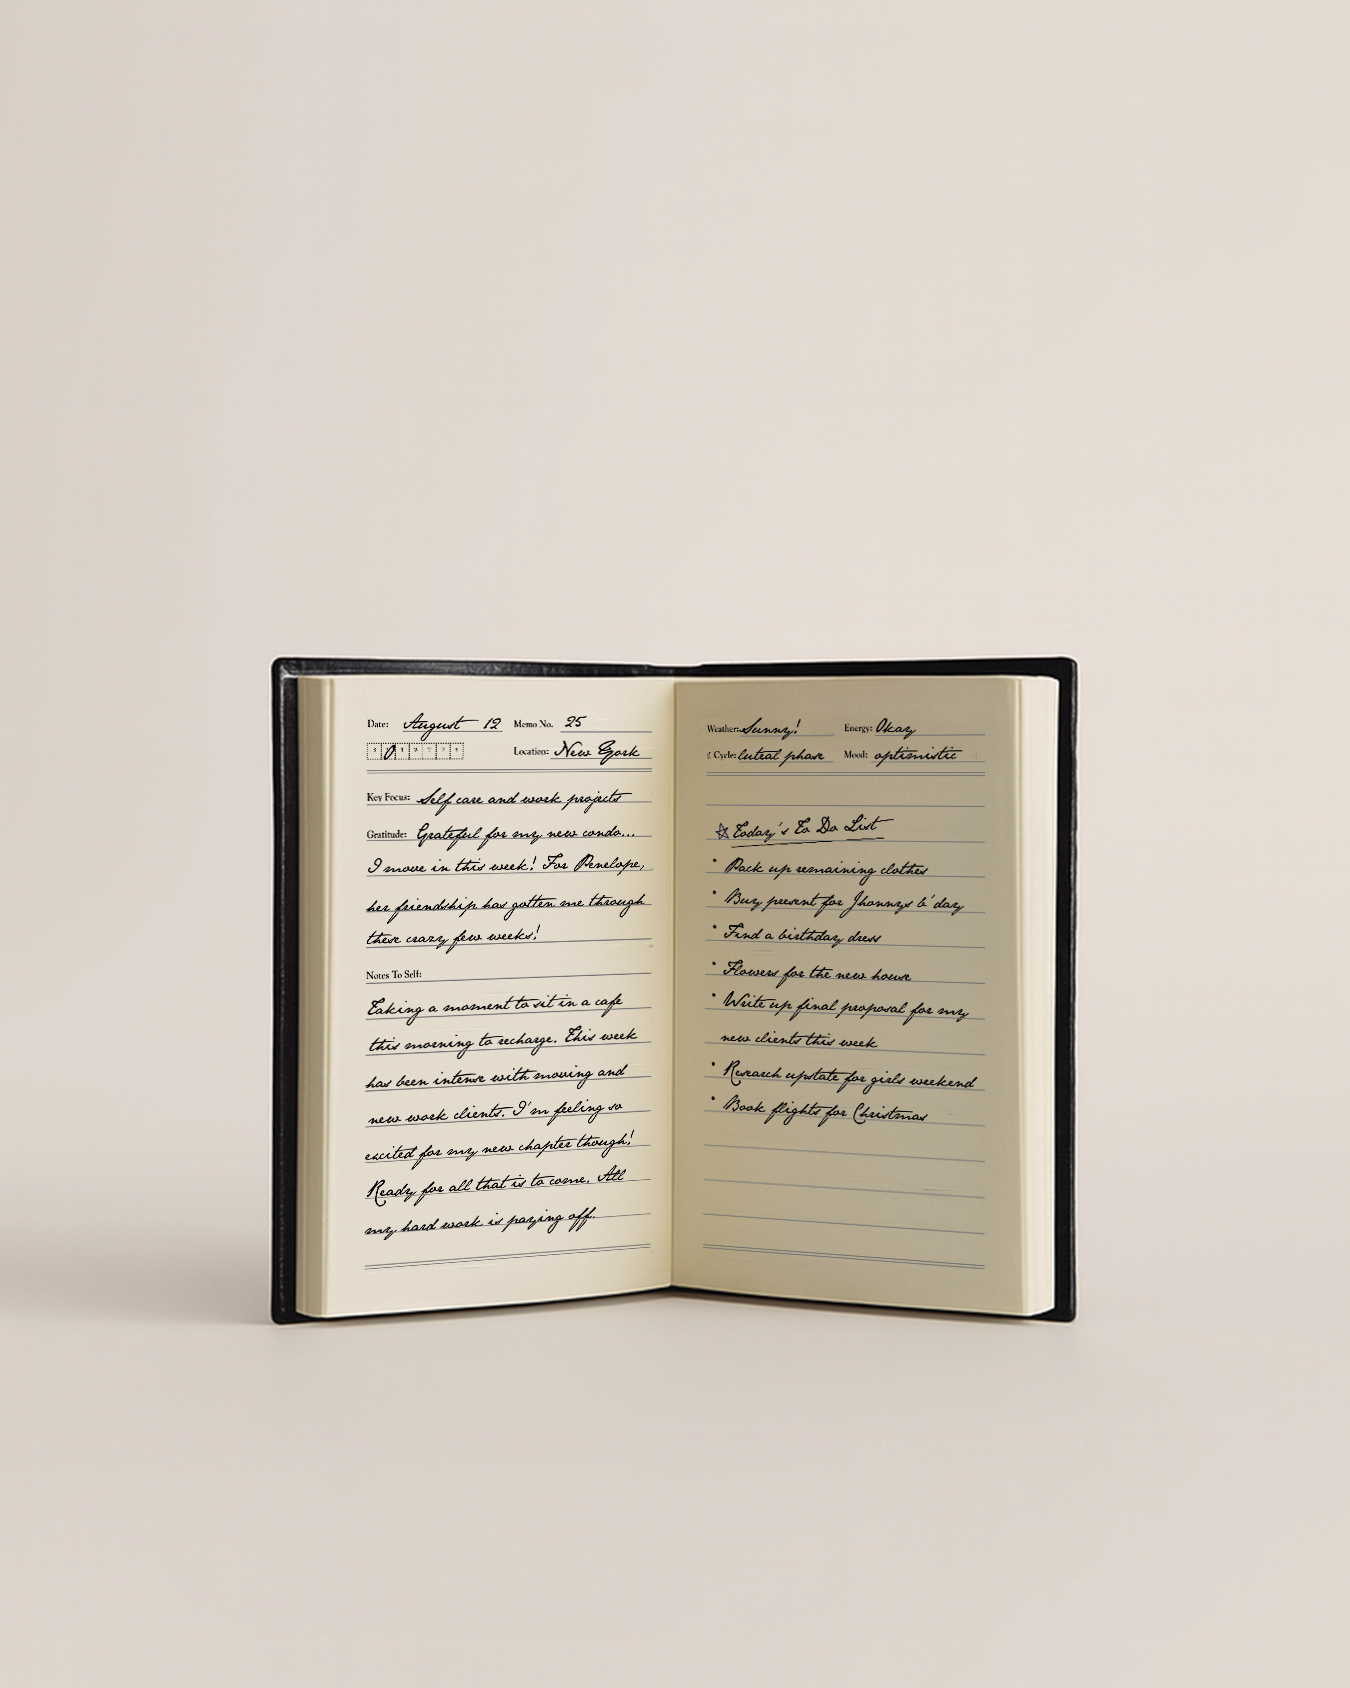 Date: August 12 Memo No. 25
S M T W T F S Location: New York
Key Focus: Self care and work projects
Gratitude: Grateful for my new condo...
I move in this week! For Penelope,
her friendship has gotten me through
these crazy few weeks!
Notes To Self:
Taking a moment to sit in a cafe
this morning to recharge. This week
has been intense with moving and
new work clients. I'm feeling so
excited for my new chapter though!
Ready for all that is to come. All
my hard work is paying off.
Weather: Sunny! Energy: Okay
Cycle: luteal phase Mood: optimistic
Today's To Do List
• Pack up remaining clothes
• Buy present for Jhonnys b'day
• Find a birthday dress
• Flowers for the new house
• Write up final proposal for my
new clients this week
• Research upstate for girls weekend
• Book flights for Christmas